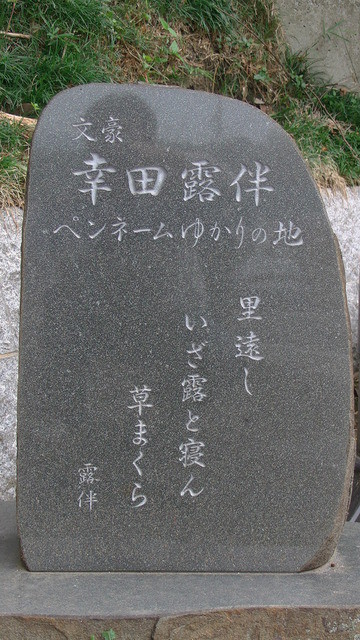 文豪
幸田露伴
ペンネームゆかりの地
里遠し
いざ露と寝ん
草まくら
露伴